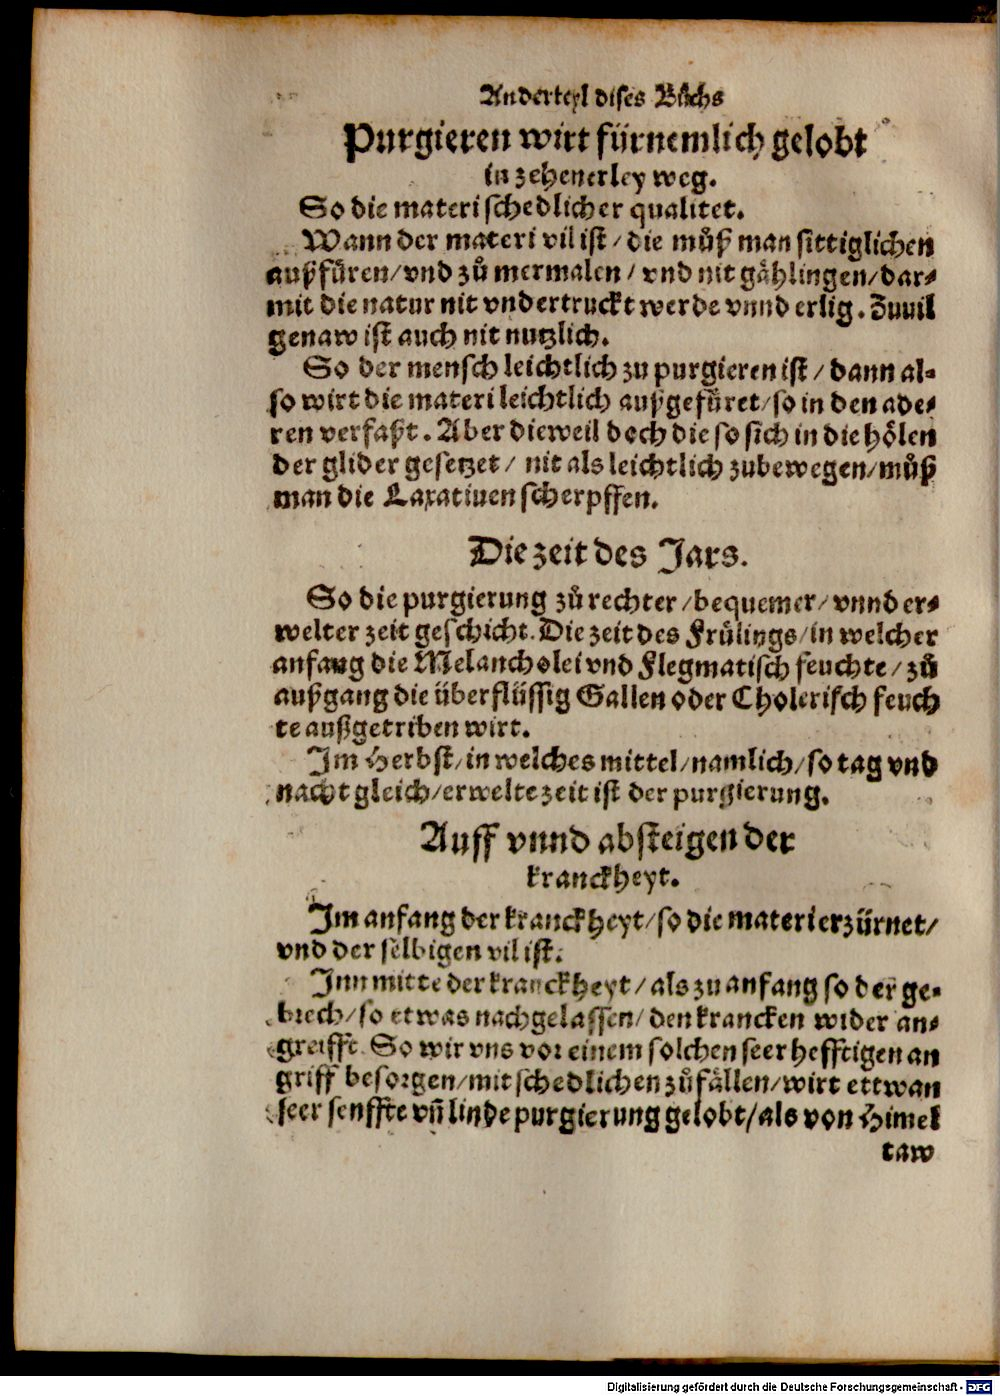 Anderteyl dises Bůchs
Purgieren wirt fürnemlich gelobt
in zehenerley weg.
So die materi schedlicher qualitet.
Wann der materi vil ist / die můß man sittiglichen
außfüren / vnd zů mermalen / vnd nit gählingen / dar⸗
mit die natur nit vndertruckt werde vnnd erlig. Zuuil
genaw ist auch nit nutzlich.
So der mensch leichtlich zu purgieren ist / dann al⸗
so wirt die materi leichtlich außgefüret / so in den ade⸗
ren verfaßt. Aber dieweil doch die so sich in die hölen
der glider gesetzet / nit als leichtlich zubewegen / můß
man die Laxatiuen scherpffen.
Die zeit des Jars.
So die purgierung zů rechter / bequemer / vnnd er⸗
welter zeit geschicht. Die zeit des Frülings / in welcher
anfang die Melancholei vnd Flegmatisch feuchte / zů
außgang die überflüssig Gallen oder Cholerisch feuch
te außgetriben wirt.
Im Herbst / in welches mittel / namlich / so tag vnd
nacht gleich / erwelte zeit ist der purgierung.
Auff vnnd absteigen der
kranckheyt.
Im anfang der kranckheyt / so die materi erzürnet /
vnd der selbigen vil ist.
Inn mitte der kranckheyt / als zu anfang so der ge⸗
brech / so etwas nachgelassen / den krancken wider an⸗
greifft. So wir vns vor einem solchen seer hefftigen an
griff besorgen / mit schedlichen zůfällen / wirt ettwan
seer senffte vñ linde purgierung gelobt / als von Himel
taw
Digitalisierung gefördert durch die Deutsche Forschungsgemeinschaft - DFG